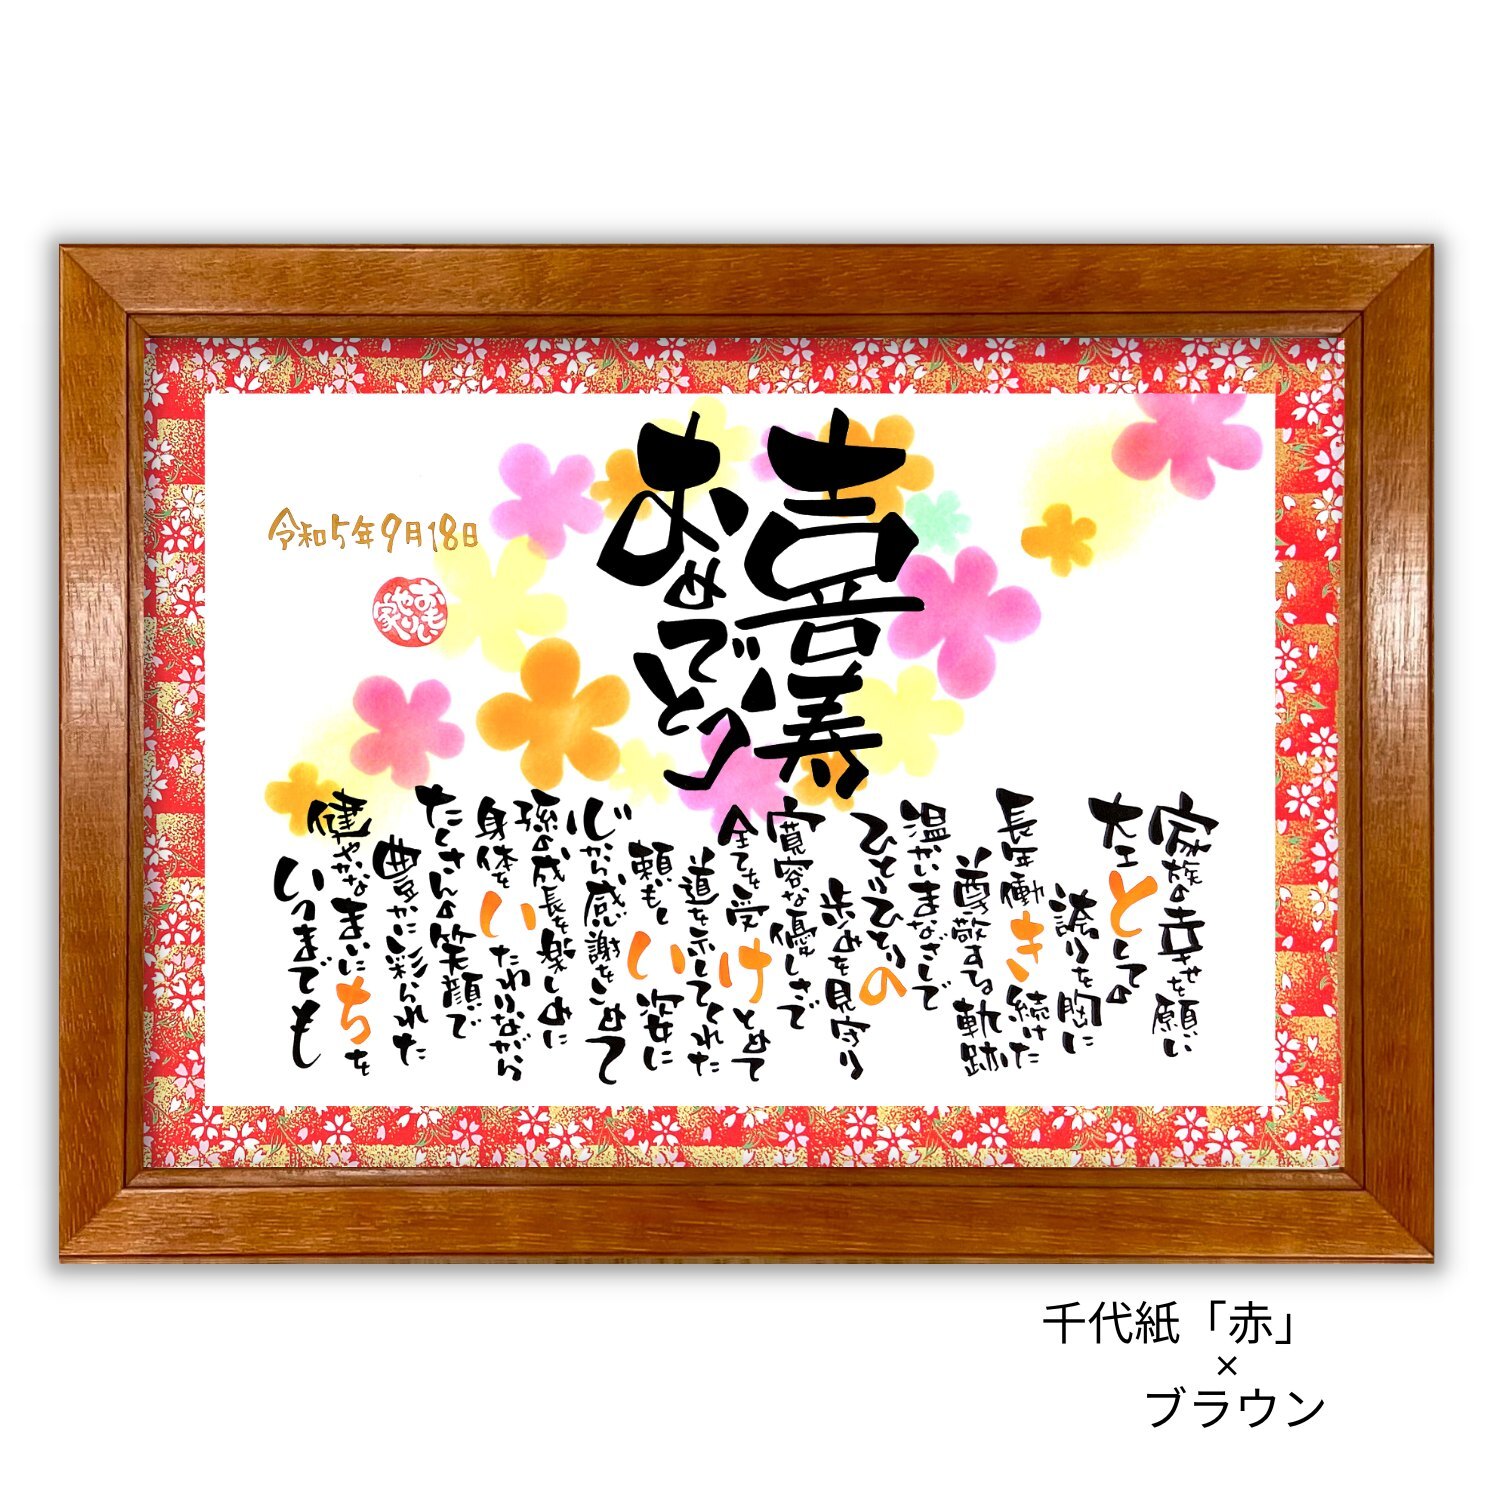 喜寿
おめでとう
家族の幸せを願い
大工としての
誇りを胸に
長年働き続けた
尊敬する軌跡
温かいまなざしで
ひとりひとりの
歩みを見守り
寛容な優しさで
全てを受けとめて
道を示してくれた
頼もしい姿に
心から感謝をこめて
孫の成長を楽しみに
身体をいたわりながら
たくさんの笑顔で
豊かに彩られた
健やかなまいにちを
いつまでも
令和5年9月18日
おもいやり家
千代紙「赤」
×
ブラウン